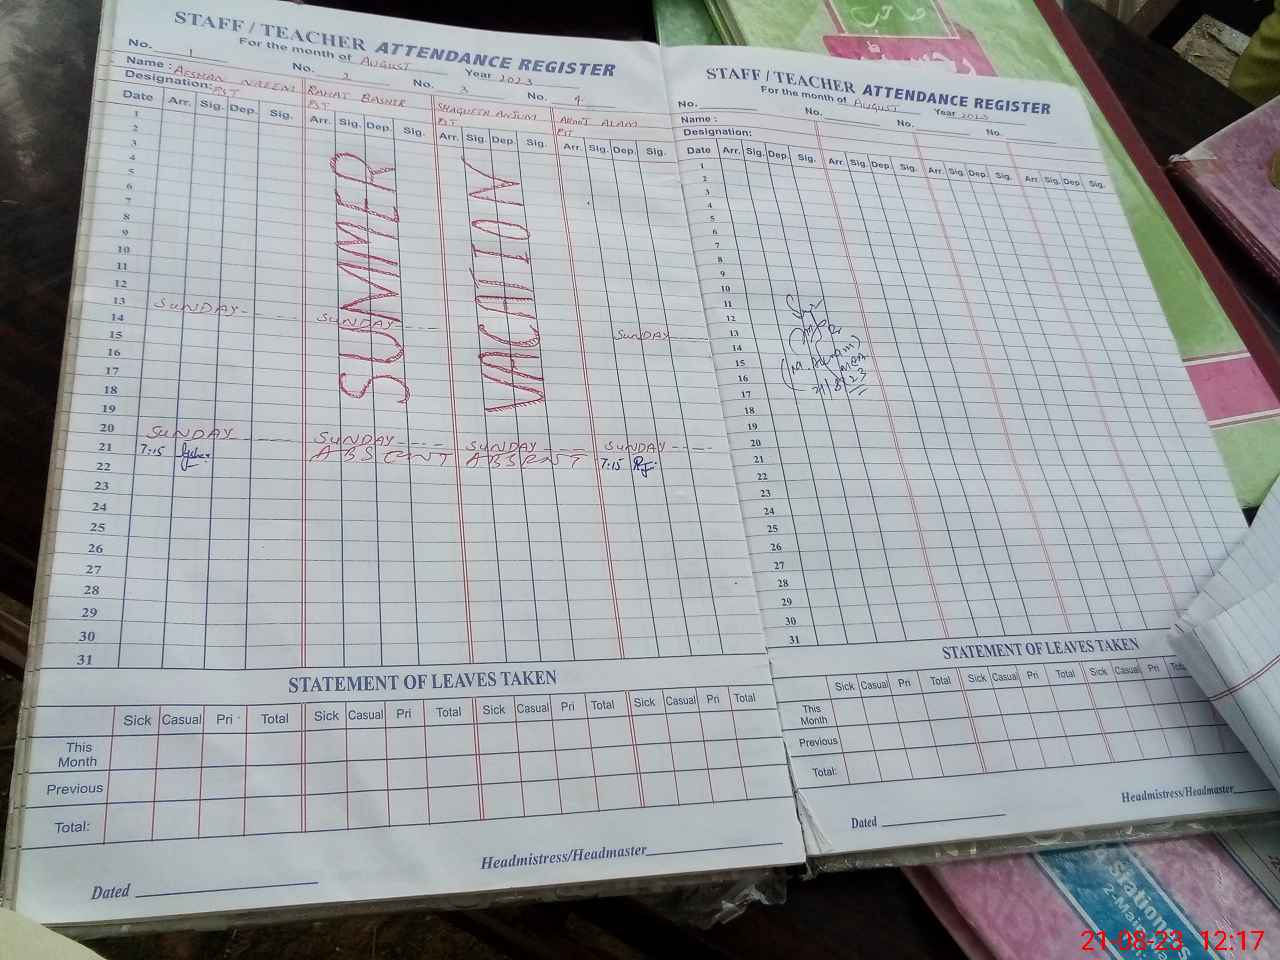 STAFF / TEACHER ATTENDANCE REGISTER
For the month of AUGUST Year 2023
No. 1 No. 2 No. 3 No. 4
Name : AFSHAN NAEEM RAHAT BASHIR SHAGUFTA ANJUM ALAM
Designation: PST PST PST PST
Date Arr. Sig. Dep. Sig. Arr. Sig. Dep. Sig. Arr. Sig. Dep. Sig. Arr. Sig. Dep. Sig.
1
2
3
4
5
6
7
8
9
10
11
12
13 SUNDAY SUNDAY SUNDAY
14
15
16
17
18
19
20 SUNDAY SUNDAY SUNDAY SUNDAY
21 7:15 ABSENT ABSENT 7:15
22
23
24
25
26
27
28
29
30
31
SUMMER
VACATION
STATEMENT OF LEAVES TAKEN
Sick Casual Pri Total Sick Casual Pri Total Sick Casual Pri Total Sick Casual Pri Total
This Month
Previous
Total:
Headmistress/Headmaster
Dated
STAFF / TEACHER ATTENDANCE REGISTER
For the month of AUGUST Year 2023
No. No. No. No.
Name :
Designation:
Date Arr. Sig. Dep. Sig. Arr. Sig. Dep. Sig. Arr. Sig. Dep. Sig. Arr. Sig. Dep. Sig.
1
2
3
4
5
6
7
8
9
10
11
12
13
14
15
16
17
18
19
20
21
22
23
24
25
26
27
28
29
30
31
MEA
21/8/23
STATEMENT OF LEAVES TAKEN
Sick Casual Pri Total Sick Casual Pri Total Sick Casual Pri Total
This Month
Previous
Total:
Headmistress/Headmaster
Dated
صاحب
رجسٹر
21-08-23 12:17